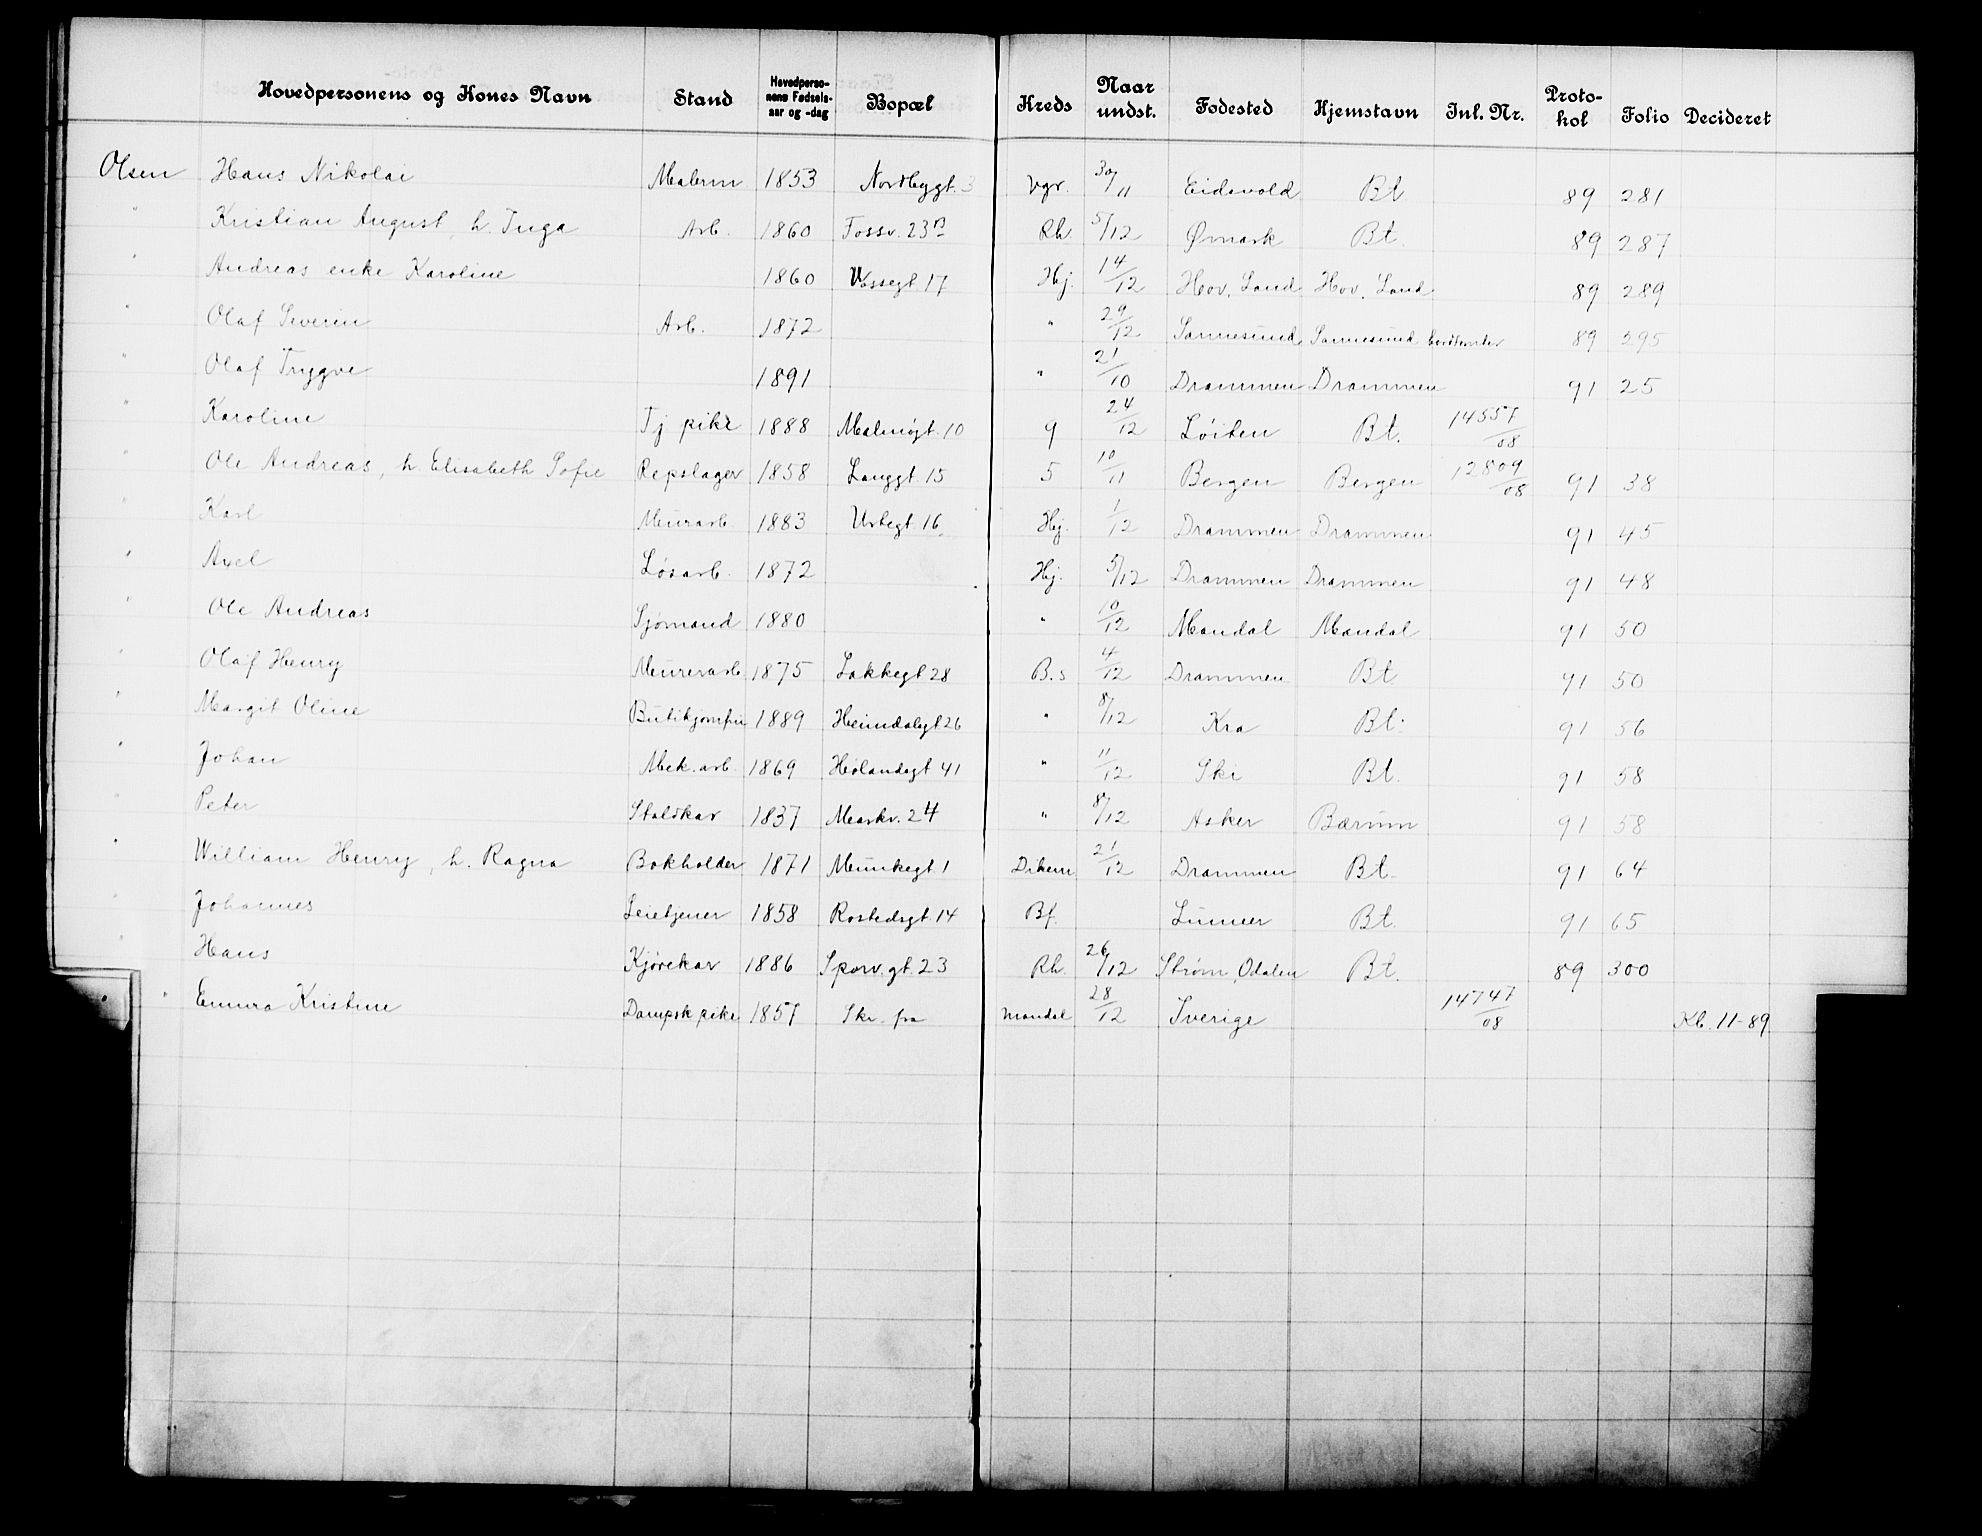 Hovedpersonens og Kones Navn Stand Hovedpersonens Fødselsaar og -dag Bopæl Kreds Naar undst. Fødested Hjemstavn Inl. Nr. Protokol Folio Decideret
Olsen Hans Nikolai Malerm 1853 Nordbygt. 3 Vgr. 30/11 Eidsvold Bt 89 281
" Kristian August, h. Inga Arb. 1860 Fossv. 23B Rh. 5/12 Ømark Bt. 89 287
" Andreas enke Karoline 1860 Vossegt 17 Hj. 14/12 Hov, Land Hov, Land 89 289
" Olaf Severin Arb. 1872 " 29/12 Sannesund Sannesund 89 295
" Olaf Trygve 1891 " 21/10 Drammen Drammen 91 25
" Karoline Tj pike 1888 Malmøgt. 10 9 24/12 Løiten Bt. 14557/08
" Ole Andreas, h. Elisabeth Sofie Repslager 1858 Langgt. 15 5 10/11 Bergen Bergen 12809/08 91 38
" Karl Murarb. 1883 Urtegt. 16 Hj. 1/12 Drammen Drammen 91 45
" Axel Løsarb. 1872 Hj. 5/12 Drammen Drammen 91 48
" Ole Andreas Sjømand 1880 " 10/12 Mandal Mandal 91 50
" Olaf Henry Murerarb. 1875 Lakkegt 28 B.s 4/12 Drammen Bt 91 50
" Margit Oline Butikjomfru 1889 Heimdalsgt 26 " 8/12 Kra Bt. 91 56
" Johan Mek. arb. 1869 Hølandsgt 41 " 11/12 Ski Bt. 91 58
" Peter Staldkar 1837 Markv. 24 " 8/12 Asker Bærum 91 58
" William Henry, h. Ragna Bokholder 1871 Munkegt 1 Dikem 21/12 Drammen Bt. 91 64
" Johannes Leietjener 1858 Rostedsgt. 14 Bf. Lunner Bt. 91 65
" Hans Kjørekar 1886 Sporv.gt. 23 Rh. 26/12 Strøm, Odalen Bt. 89 300
" Emma Kristine Dampsk.pike 1857 Skr. fra Mandal 28/12 Sverige 14747/08 Kb. 11-89